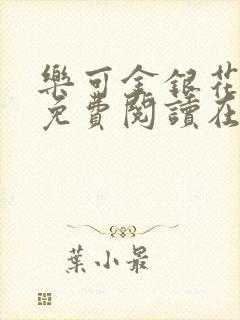 樂可金銀花
免費閱讀在
葉小最